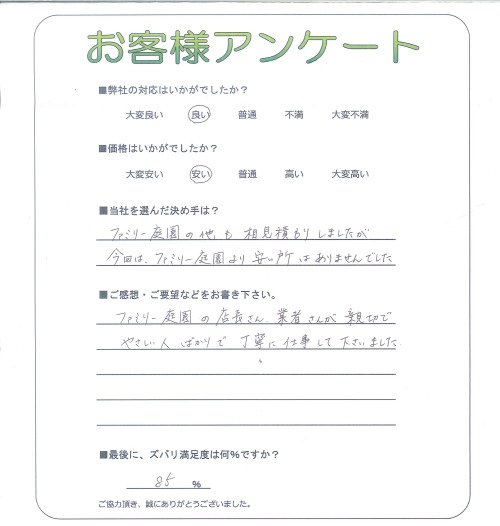 お客様アンケート
■弊社の対応はいかがでしたか？
大変良い 良い 普通 不満 大変不満
■価格はいかがでしたか？
大変安い 安い 普通 高い 大変高い
■当社を選んだ決め手は？
ファミリー庭園の他も相見積もりしましたが
今回は、ファミリー庭園より安い所はありませんでした
■ご感想・ご要望などをお書き下さい。
ファミリー庭園の店長さん、業者さんが親切で
やさしい人ばかりで丁寧に仕事して下さいました。
■最後に、ズバリ満足度は何%ですか？
85 %
ご協力頂き、誠にありがとうございました。